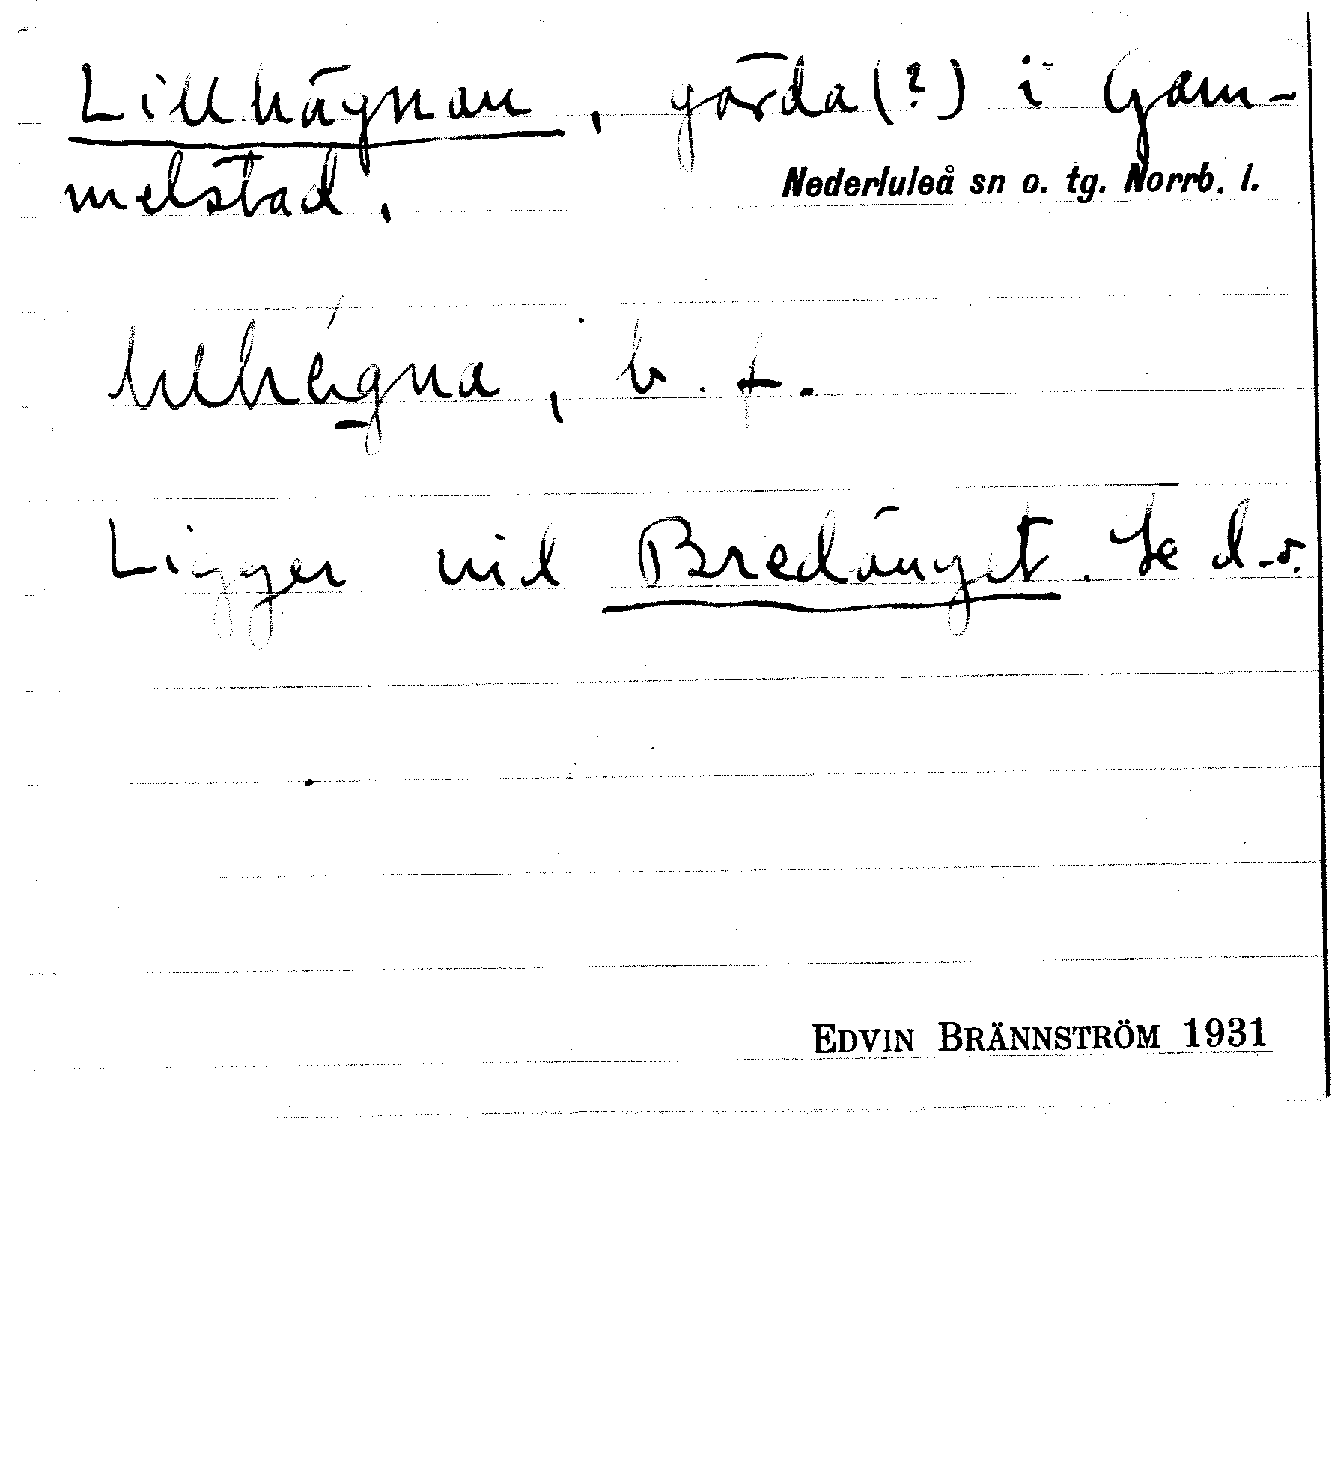 Lillhägnan, gärda(?) i Gam-
melstad.
Nederluleå sn o. tg. Norrb. l.
lilhégna, b. f.
Ligger vid Bredänget. Se d.o.
EDVIN BRÄNNSTRÖM 1931